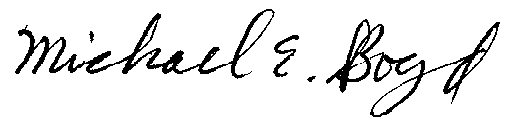 Michael E. Boyd